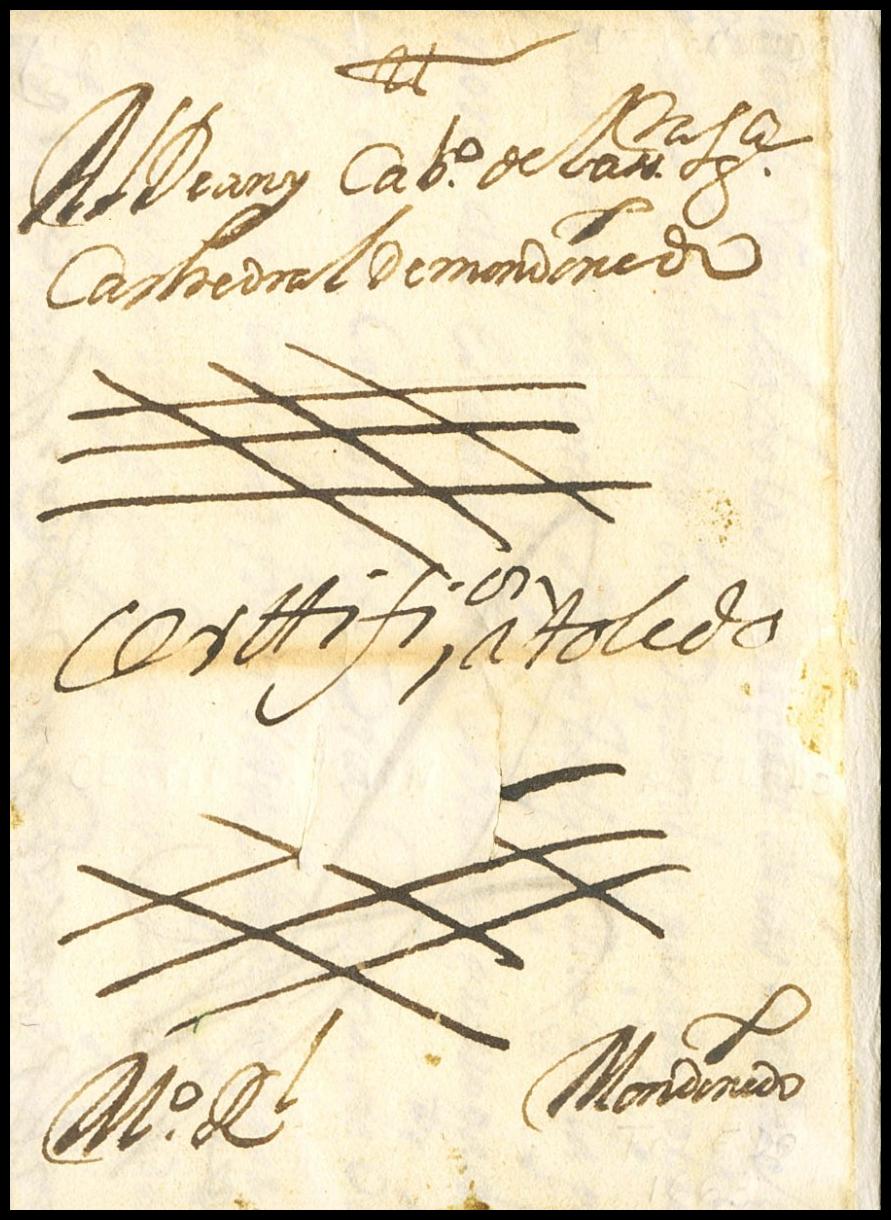 Al Dean y Cab.º de la S.
Cathedral de mondoñedo
Certtifi.on a toledo
M.º Rl Mondoñedo